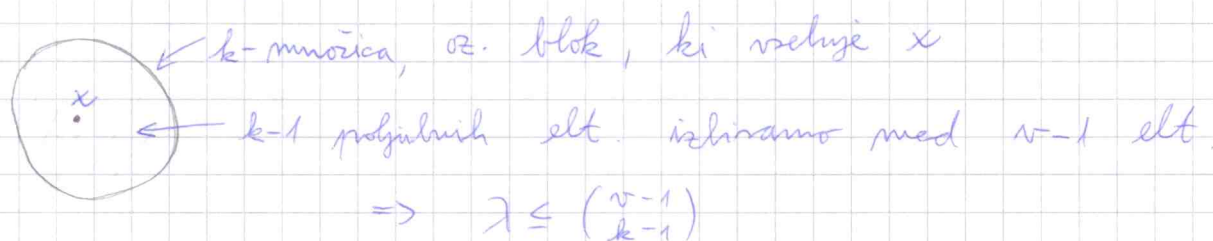 k-množica, oz. blok, ki vsebuje x
x
k-1 poljubnih elt. izbiramo med v-1 elt.
=> λ ≤ (v-1 k-1)